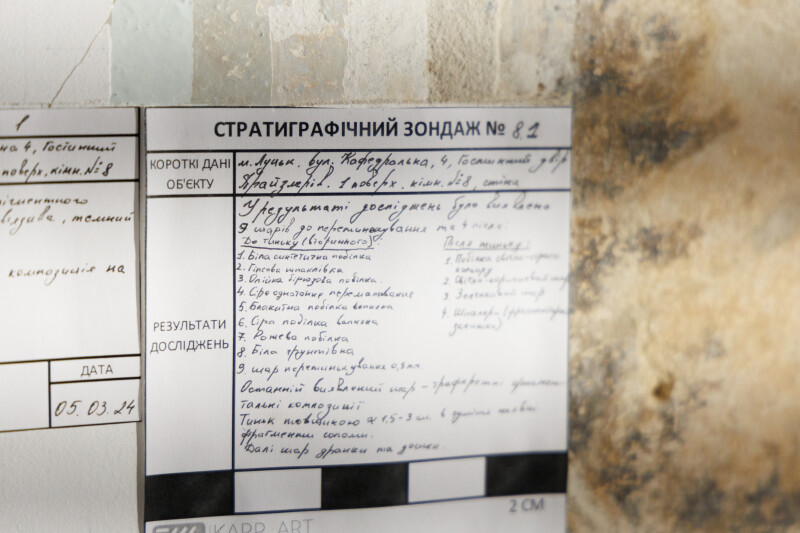 1
на 4, Гостинний
поверх, кімн. №8
темний
композиція на
ДАТА
05.03.24
СТРАТИГРАФІЧНИЙ ЗОНДАЖ № 8.1
КОРОТКІ ДАНІ
ОБ'ЄКТУ
м. Луцьк, вул. Кафедральна, 4, Гостинний двір
Крайзмерів. 1 поверх, кімн. №8, стіна
РЕЗУЛЬТАТИ
ДОСЛІДЖЕНЬ
У результаті досліджень було виявлено
9 шарів до перетинькування та 4 після.
До тиньку (вторинного):
1. Біла синтетична побілка
2. Гіпсова шпаклівка
3. Олійна бірюзова побілка.
4. Сіро однотонне перемалювання
5. Блакитна побілка вапняна
6. Сіра побілка вапняна
7. Рожева побілка
8. Біла ґрунтівка
9. шар перетинькування 0,8 мм.
Після тиньку:
1. Побілка світло-сірого
кольору
2. Світло-коричневий шар
3. Зеленкавий шар
4. Шпалери (фрагментарні
залишки)
Останній виявлений шар – трафаретні орнамен-
тальні композиції
Тиньк товщиною ≈ 1,5-3 см. в
фрагменти соломи.
Далі шар дранки та дошка.
2 СМ
KARP ART